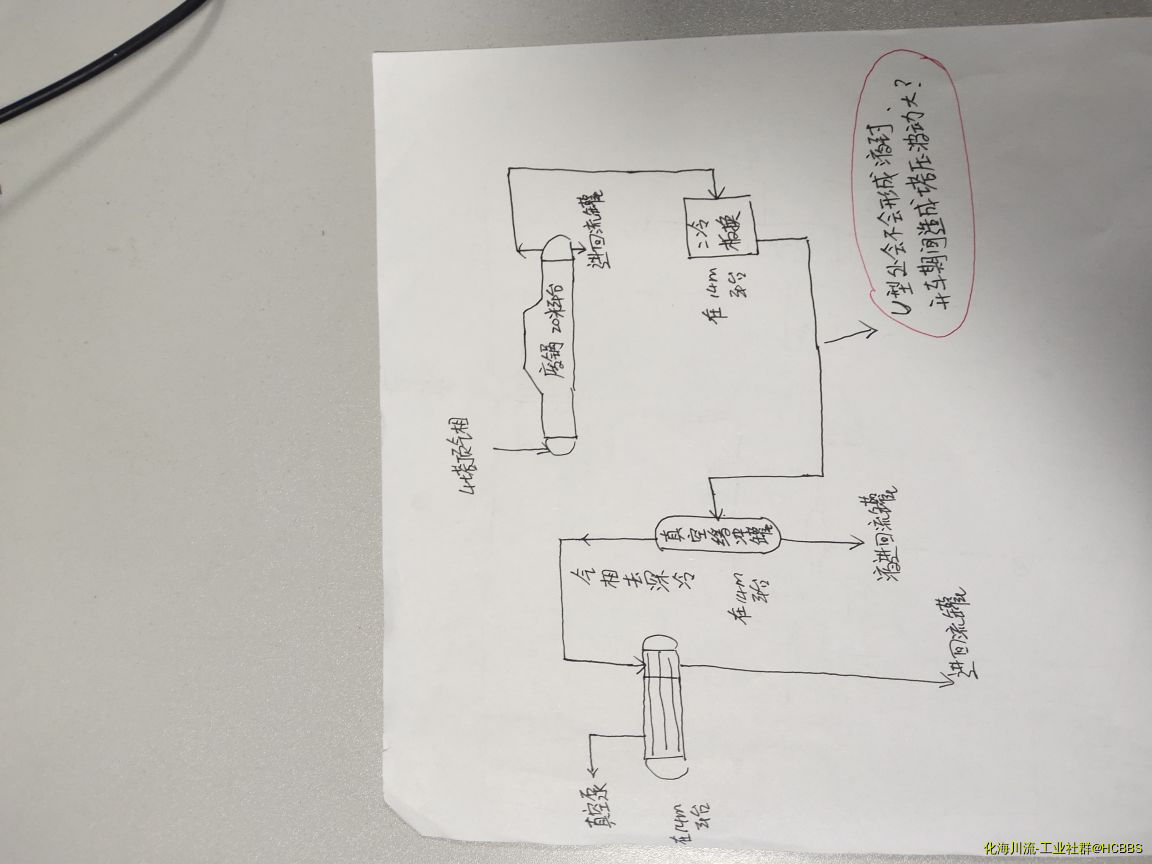 4#塔顶气相
废锅 20米平台
进回流罐
二冷
板换
在14m
平台
U型处会不会形成液封、
开车期间造成塔压波动大？
真空缓冲罐
在14m
平台
液进回流罐
气相去深冷
进回流罐
真空泵
在14m
平台
化海川流-工业社群@HCBBS